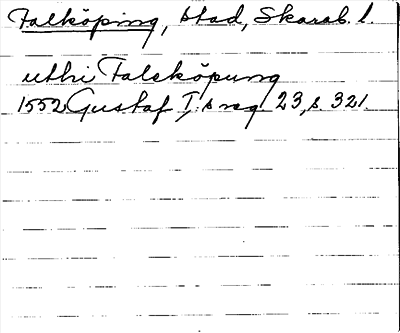 Falköping, stad, Skarab. l.
uthi Faleköpung
1552 Gustaf I:s reg 23, s 321.